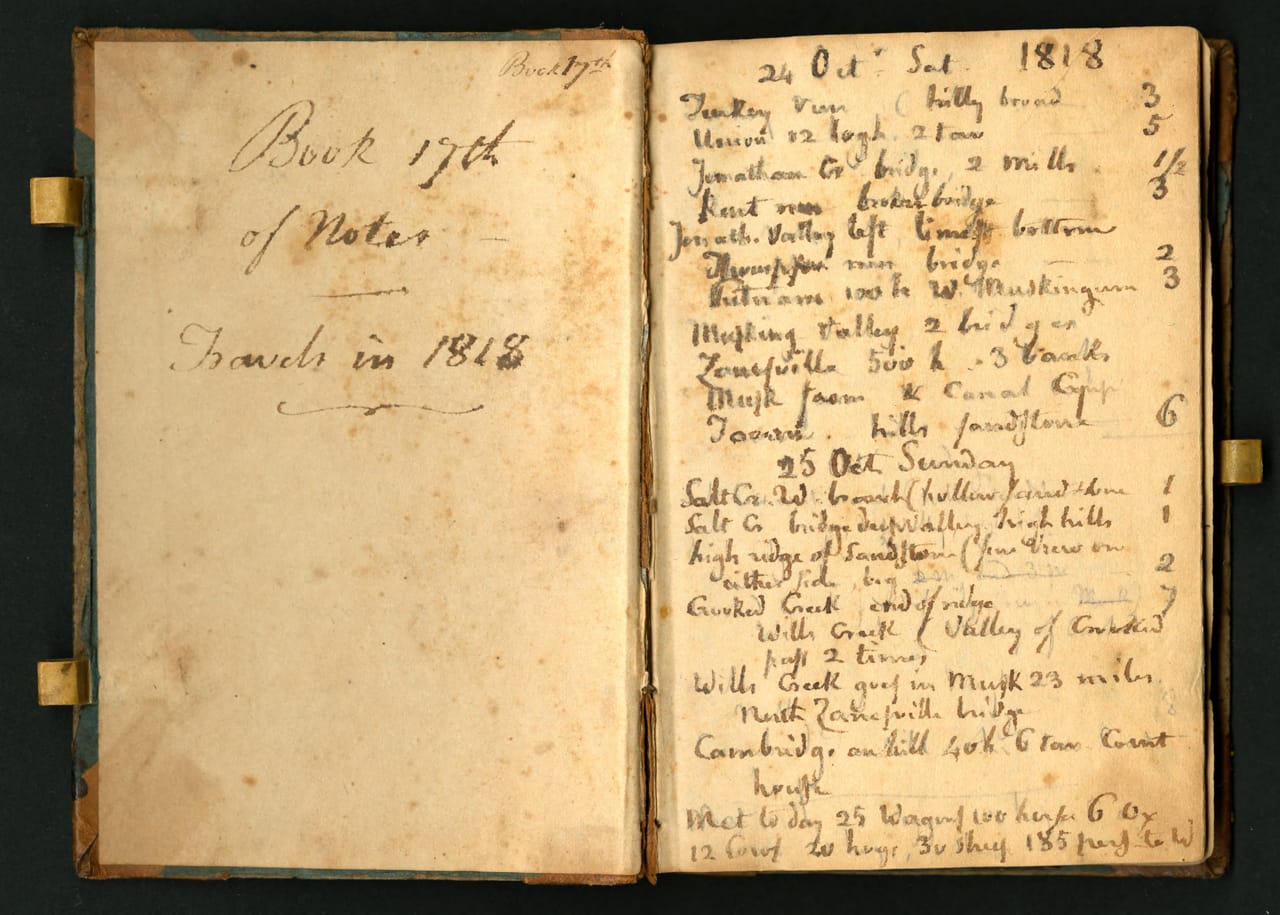 Book 17th
Book 17th
of Notes
Travels in 1818
24 Oct.r Sat 1818
Turkey run ( hilly broad 3
Union 12 logh. 2 tav 5
Jonathan Cr bridge, 2 Mills 1/2
Kent run broken bridge 3
Jonath. Valley left limest bottom
Thompson run bridge 2
Putnam 100 h W. Muskingum 3
Musking Valley 2 bridges
Zanesville 500 h. 3 banks
Musk &amp; Canal Comp
hills sandstone 6
25 Oct Sunday
Salt Cr. W. branch ( hollow sandstone 1
Salt Cr bridge deep Valley high hills 1
high ridge of Sandstone ( fine View on
either side, big 2
Crooked Creek end of ridge 7
Wills Creek ( Valley of Crooked
pass 2 times
Wills Creek goes in Musk 23 miles
North Zanesville bridge
Cambridge on hill 40 h. 6 tav Court
house
Met to day 25 Wagons 100 horses 6 Ox
12 Cows 20 hogs, 30 sheep 185 pers to W